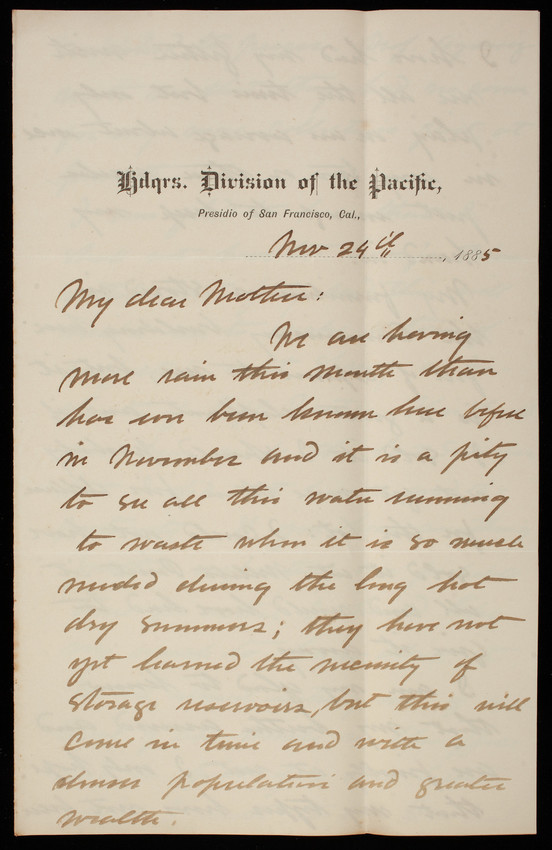 Hdqrs. Division of the Pacific,
Presidio of San Francisco, Cal.,
Nov 24th, 1885
My dear Mother:
We are having
more rain this month than
has ever been known here before
in November and it is a pity
to see all this water running
to waste when it is so much
needed during the long hot
dry summers; they have not
yet learned the necessity of
storage reservoirs, but this will
come in time and with a
denser population and greater
wealth.